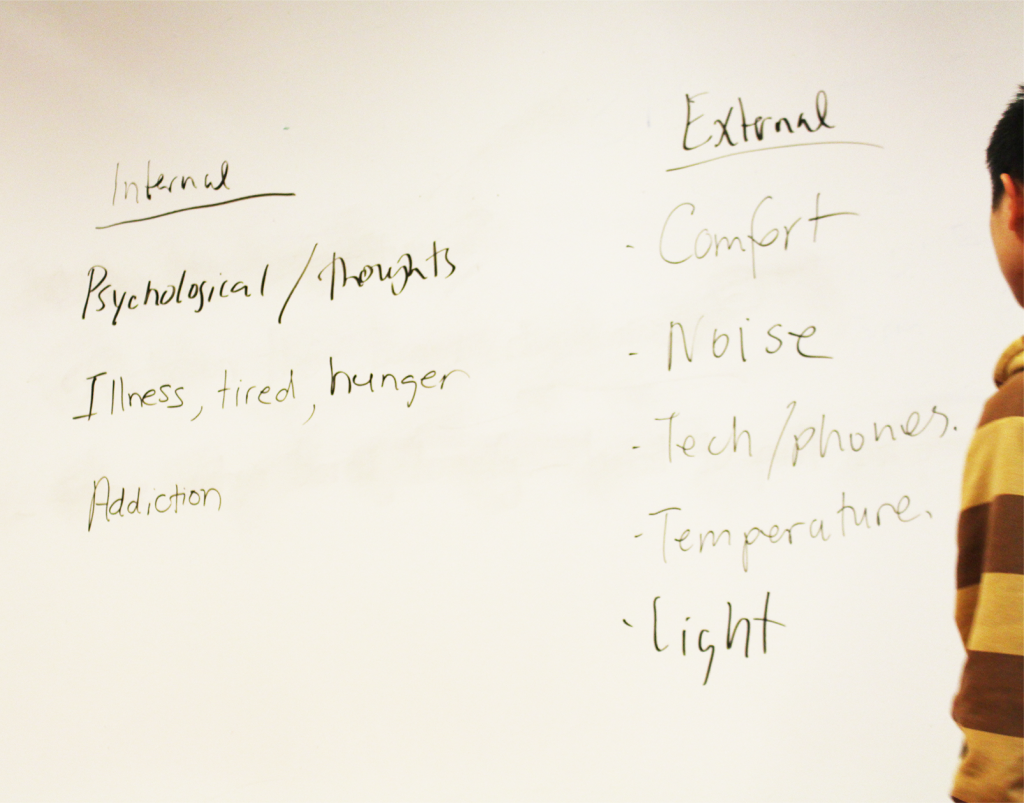 Internal
Psychological / thoughts
Illness, tired, hunger
Addiction
External
· Comfort
- Noise
- Tech/phones.
- Temperature.
· Light